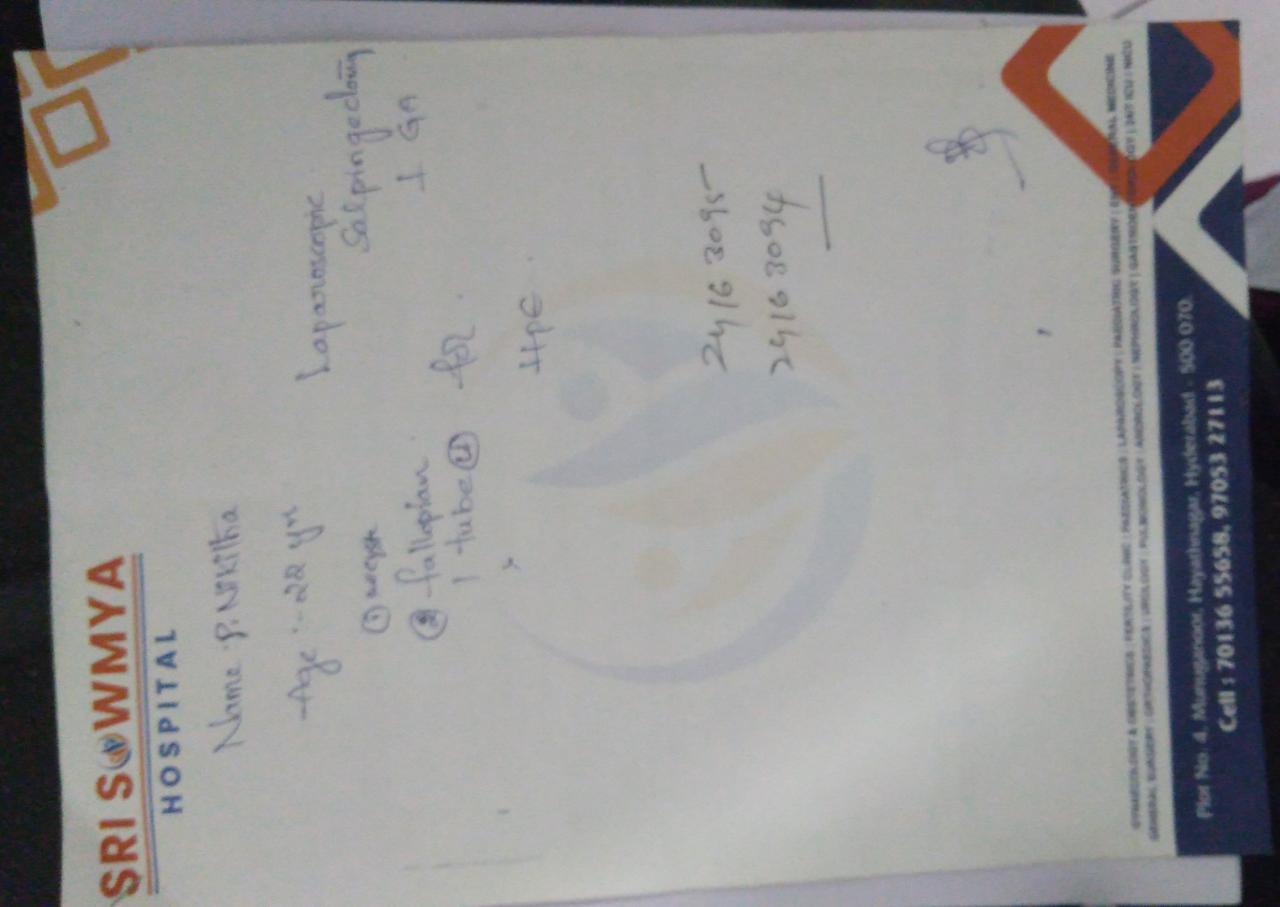 SRI SOWMYA
HOSPITAL
Name :- P. Nikitha
Age :- 22 yrs
Laparoscopic
Salpingectomy
⊥ GA
①
② fallopian
tube for
HPE.
2416 3095
2416 3094
GYNAECOLOGY & OBSTETRICS | FERTILITY CLINIC | PAEDIATRICS | LAPAROSCOPY | PAEDIATRIC SURGERY | ENT | GENERAL MEDICINE
GENERAL SURGERY | ORTHOPAEDICS | UROLOGY | PULMONOLOGY | ANDROLOGY | NEPHROLOGY | GASTROENTEROLOGY | 24/7 ICU | NICU
Plot No. 4, Munuganoor, Hayathnagar, Hyderabad - 500 070.
Cell : 70136 55658, 97053 27113